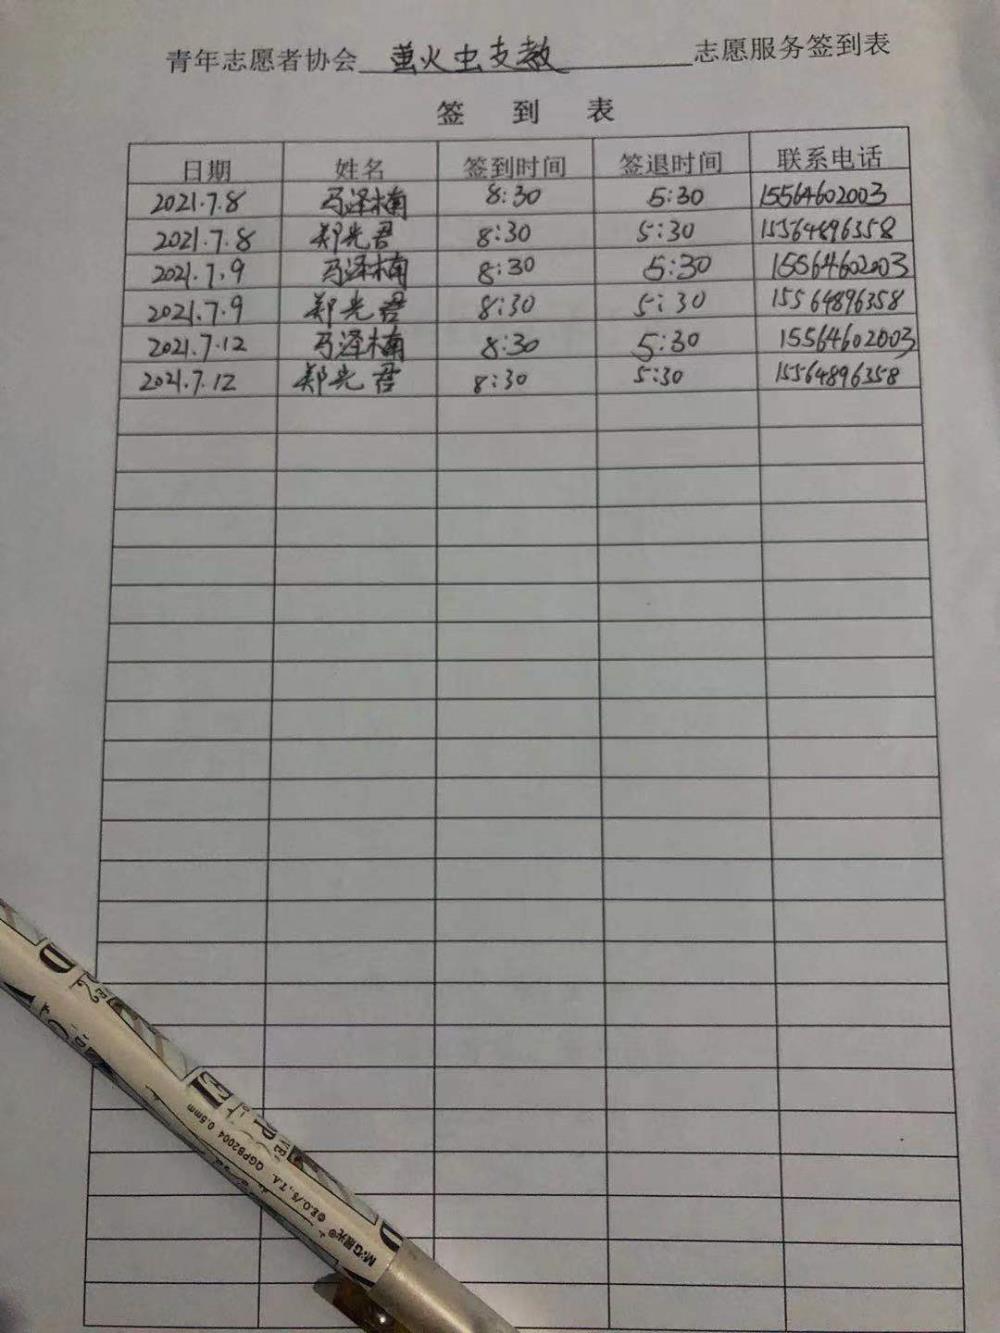 青年志愿者协会 萤火虫支教 志愿服务签到表
签 到 表
日期 姓名 签到时间 签退时间 联系电话
2021.7.8 马泽楠 8:30 5:30 15564602003
2021.7.8 郑光君 8:30 5:30 15564896358
2021.7.9 马泽楠 8:30 5:30 15564602003
2021.7.9 郑光君 8:30 5:30 15564896358
2021.7.12 马泽楠 8:30 5:30 15564602003
2021.7.12 郑光君 8:30 5:30 15564896358
M&G晨光® ©E.O./S.,T.A. QGPB2004 0.5mm